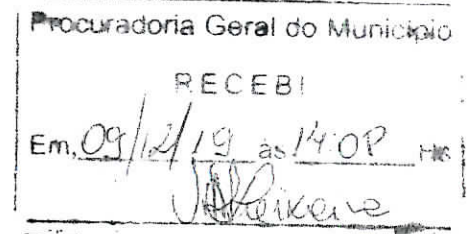 Procuradoria Geral do Município
RECEBI
Em, 09/12/19 às 14:08 Hs